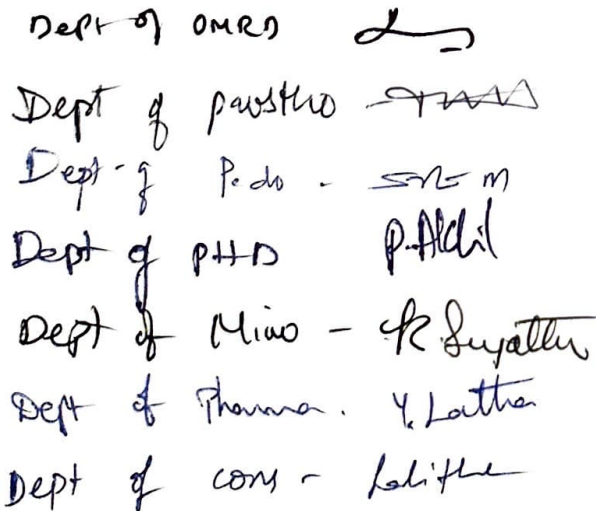 Dept of OMRD
Dept of prostho
Dept - of Pedo -
Dept of PHD P. Akhil
Dept of Micro - K Sujatha
Dept of Pharma. Y. Latha
Dept of cons - Lalitha